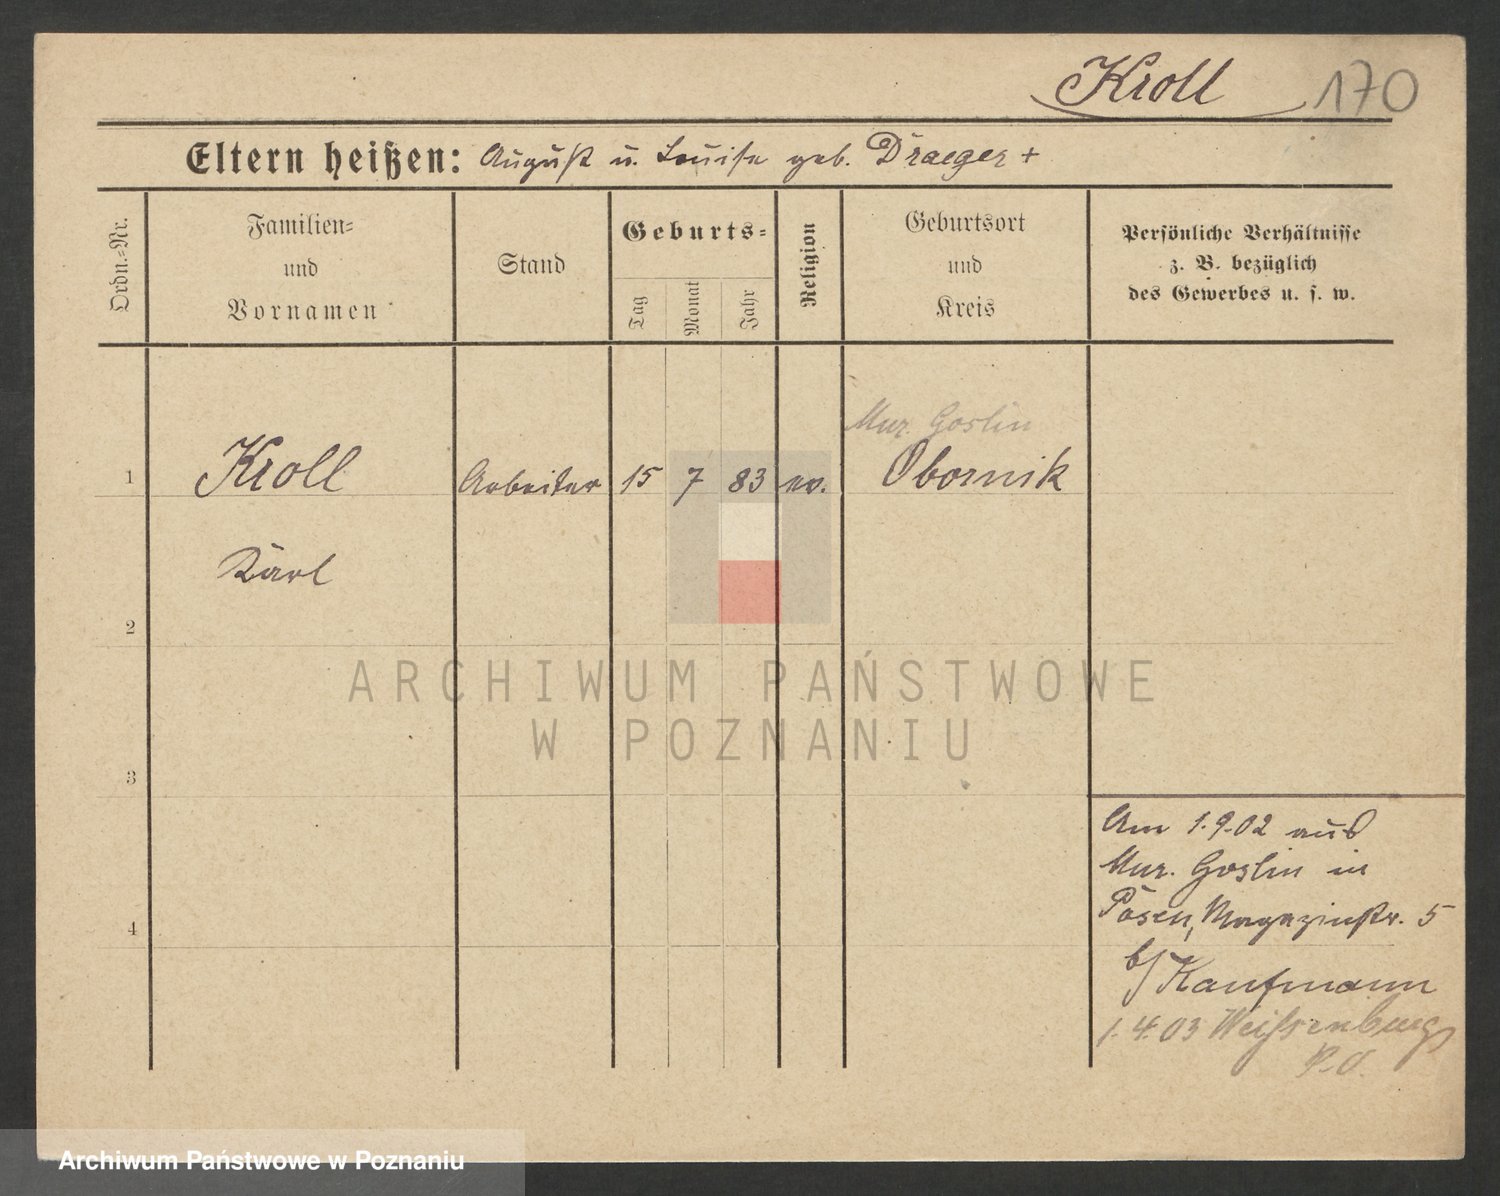 Kroll 170
Eltern heißen: August u. Louise geb. Draeger +
Ordn.=Nr.
Familien=
und
Vornamen
Stand
Geburts=
Tag
Monat
Jahr
Religion
Geburtsort
und
Kreis
Persönliche Verhältnisse
z. B. bezüglich
des Gewerbes u. s. w.
Mur. Goslin
1 Kroll Arbeiter 15 7 83 ev. Obornik
Karl
2
ARCHIWUM PAŃSTWOWE
W POZNANIU
3
Am 1.9.02 aus
Mur. Goslin in
Posen, Magazinstr. 5
4
b/ Kaufmann
1.4.03 Weissenburg
Archiwum Państwowe w Poznaniu